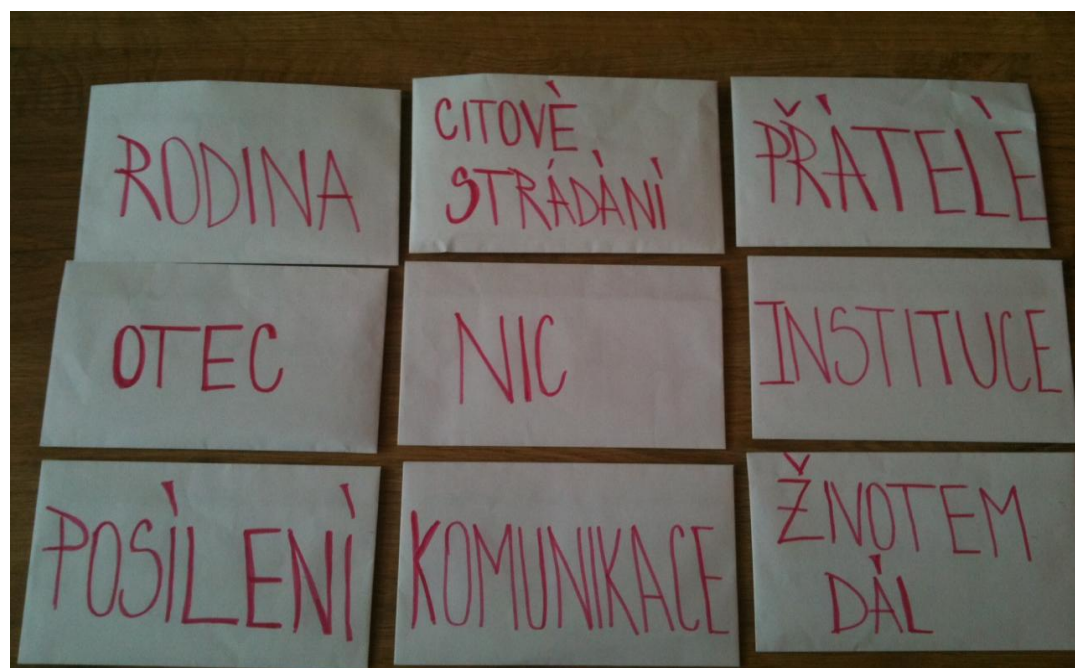 RODINA
CITOVÉ
STRÁDÁNÍ
PŘÁTELÉ
OTEC
NIC
INSTITUCE
POSÍLENÍ
KOMUNIKACE
ŽIVOTEM
DÁL